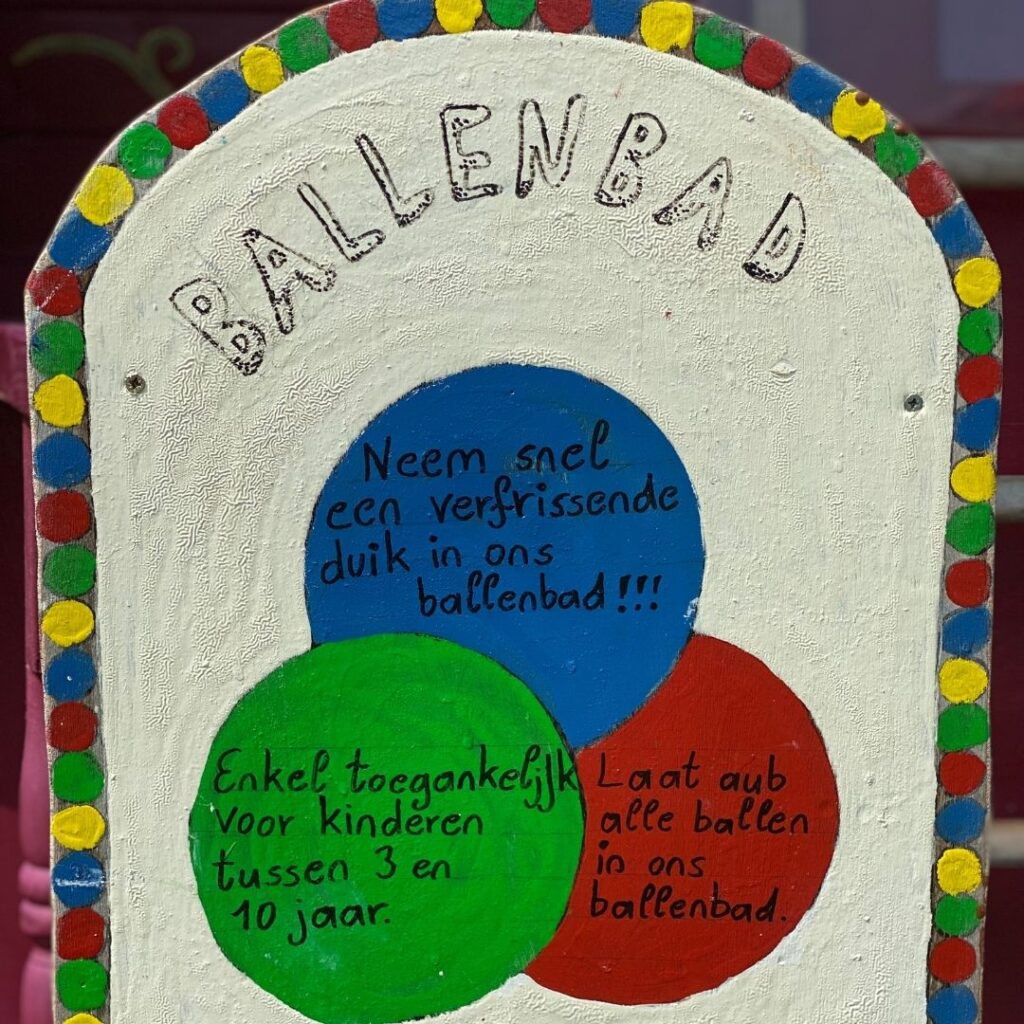 BALLENBAD
Neem snel
een verfrissende
duik in ons
ballenbad!!!
Enkel toegankelijk
voor kinderen
tussen 3 en
10 jaar.
Laat aub
alle ballen
in ons
ballenbad.